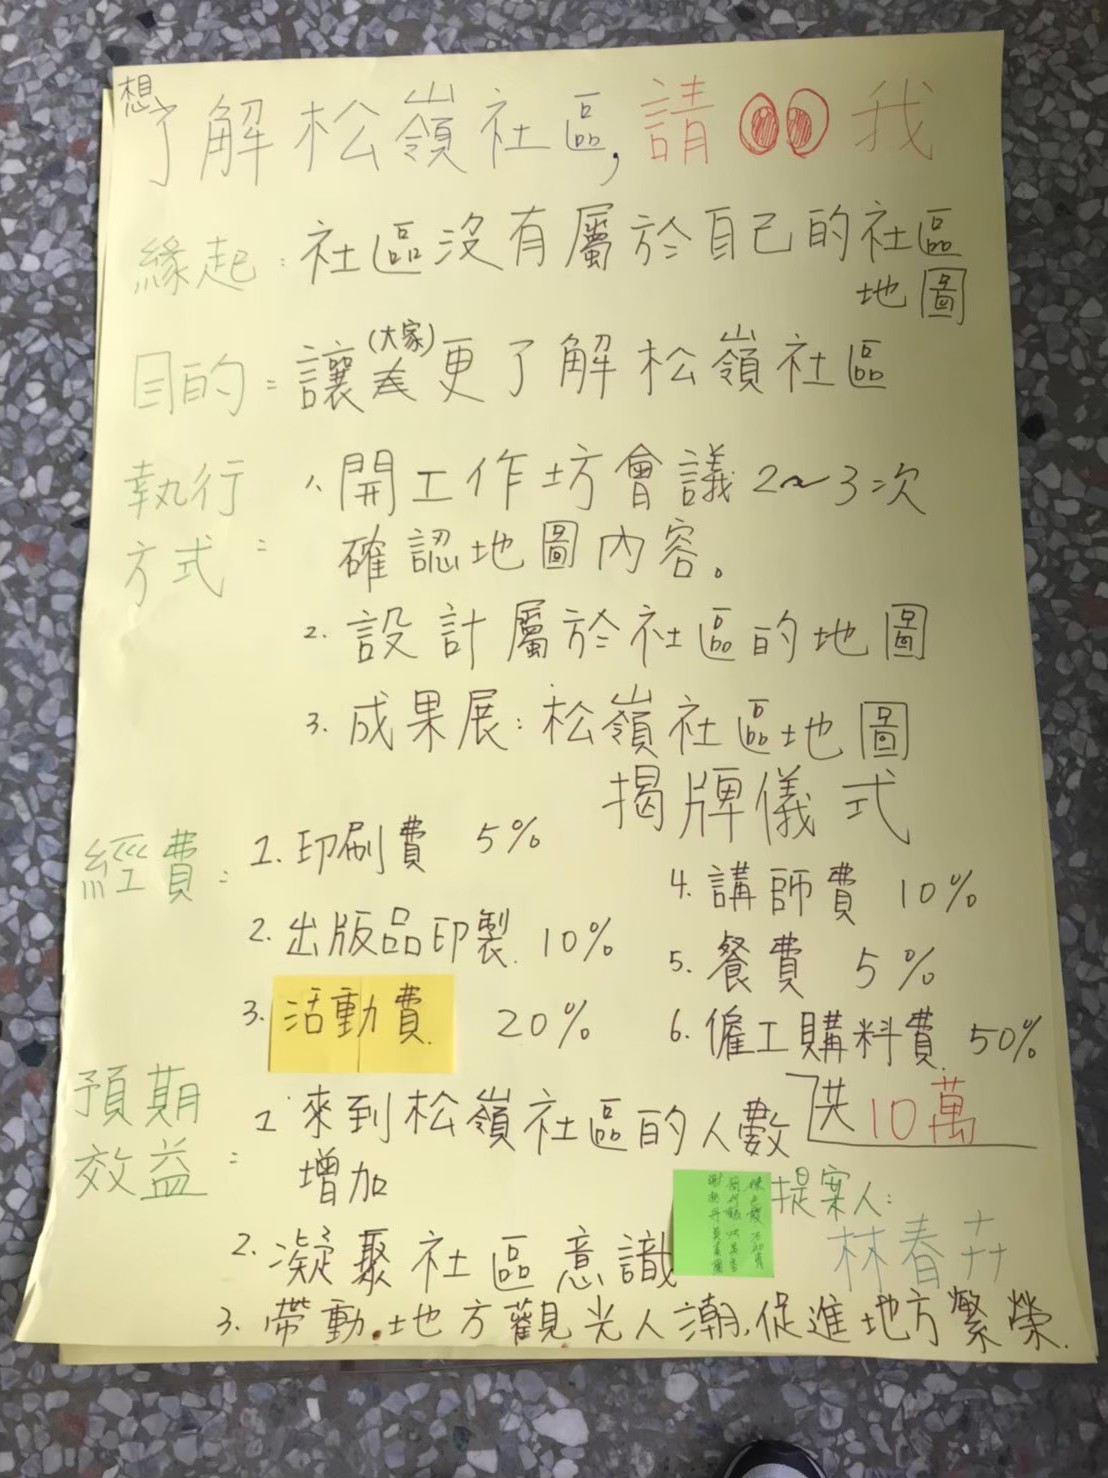 想了解松嶺社區,請 我
緣起: 社區沒有屬於自己的社區
地圖
目的: 讓(大家)更了解松嶺社區
執行
方式:
1、開工作坊會議2~3次
確認地圖內容。
2. 設計屬於社區的地圖
3. 成果展:松嶺社區地圖
揭牌儀式
經費:
1. 印刷費 5%
2. 出版品印製 10%
3. 活動費 20%
4. 講師費 10%
5. 餐費 5%
6. 僱工購料費 50%
共10萬
預期
效益:
1 來到松嶺社區的人數
增加
2. 凝聚社區意識
3. 帶動地方觀光人潮,促進地方繁榮.
提案人:
林春卉